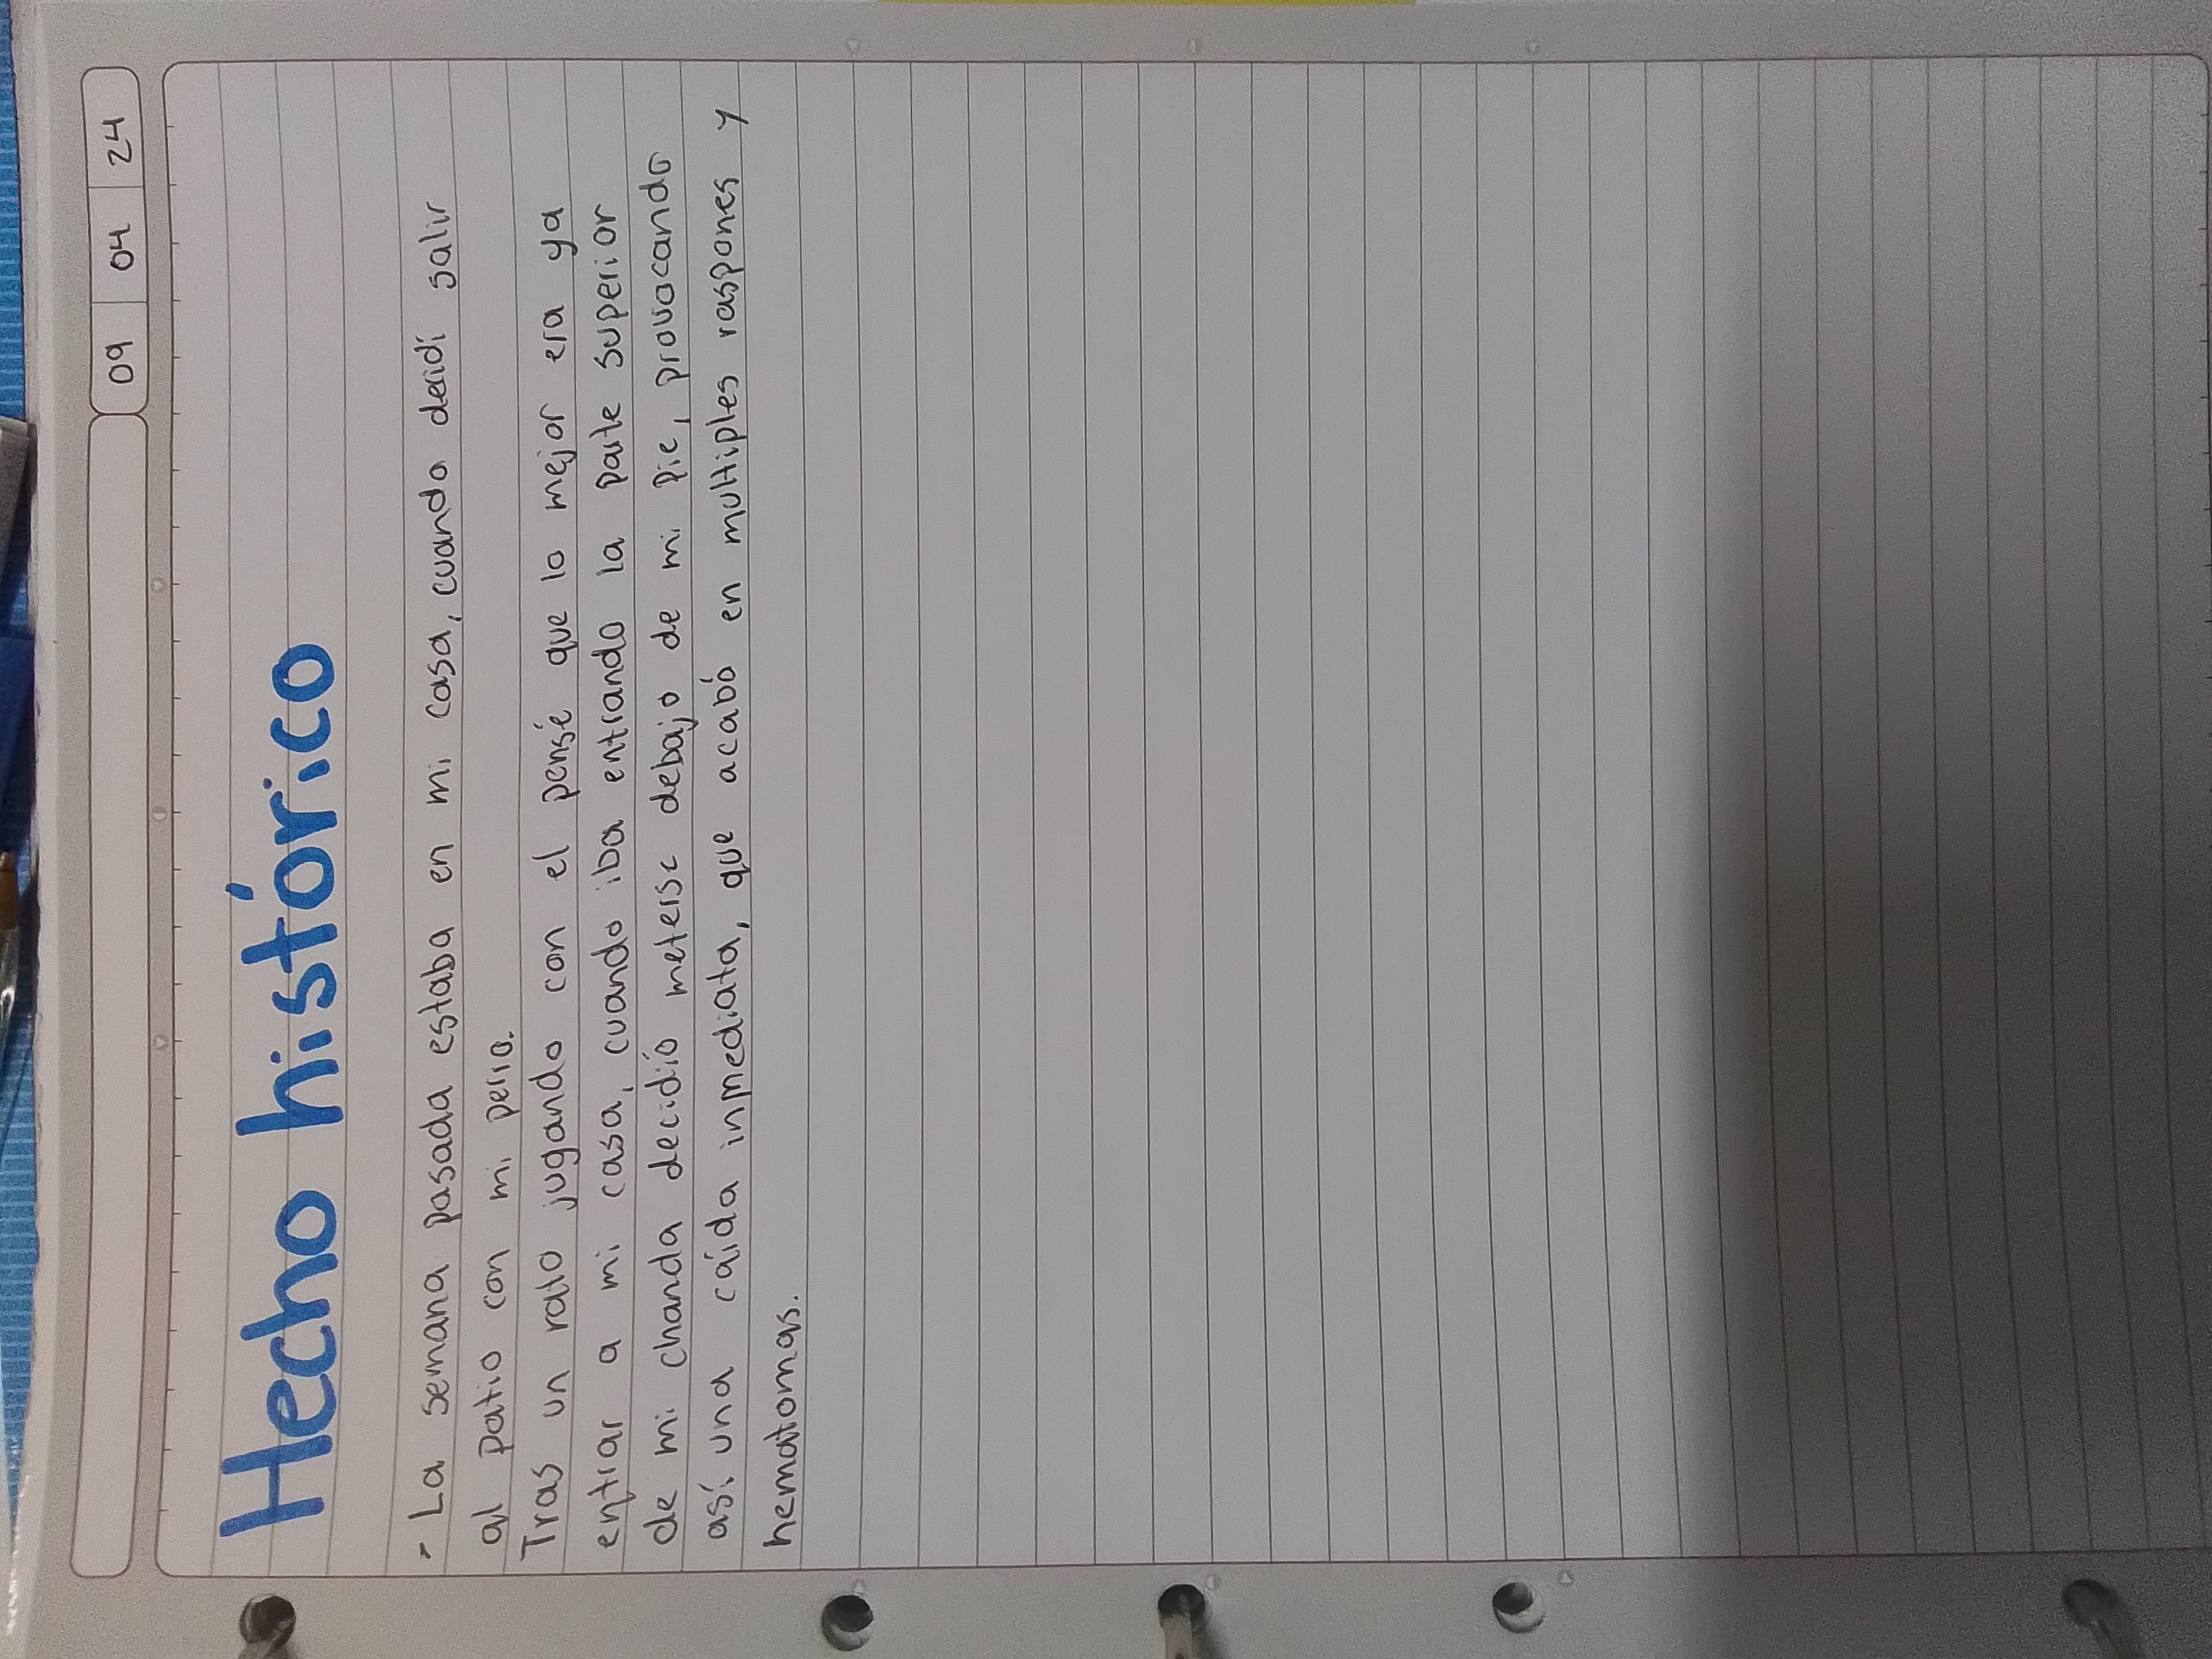 09 04 24
Hecho histórico
- La semana pasada estaba en mi casa, cuando decidí salir
al patio con mi perro.
Tras un rato jugando con el pensé que lo mejor era ya
entrar a mi casa, cuando iba entrando la parte superior
de mi chanda decidío meterse debajo de mi pie, provocando
así una caída inmediata, que acabó en multiples raspones y
hematomas.